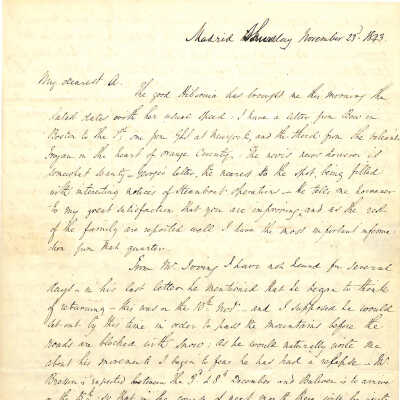 Madrid Thursday November 23d. 1843
My dearest A.
The good Hibernia has brought me this morning the
latest dates with her usual speed. I have a letter from Dow in
Boston to the 1st, one from at Newyork, and the third from the
in the heart of Orange County. The news however is
somewhat scanty - Georges letter, the nearest to the spot, being filled
with interesting notices of Steamboat Operation - he tells me however
to my great satisfaction that you are improving, and as the rest
of the family are reported well I have the most important informa-
tion from that quarter.
From Mr Irving I have not heard for several
days - in his last letter he mentioned that he began to think
of returning - this was on the 10th Nov. - and I supposed he would
set out by this time in order to pass the mountains before the
roads are blocked with snow: as he would naturally write me
about his movements I begin to fear he has had a relapse - Mr
is expected between the 3d & 8th December and is to arrive
on the 10th, so that in the course of next month there will be quite